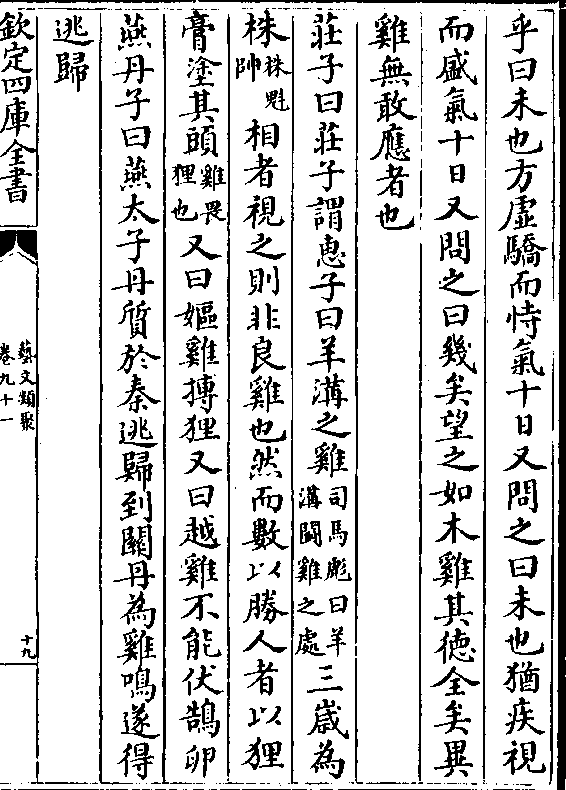 乎曰未也方虛驕而恃氣十日又問之曰未也猶疾視
而盛氣十日又問之曰幾矣望之如木雞其德全矣異
雞無敢應者也
莊子曰莊子謂惠子曰羊溝之雞司馬彪曰羊溝鬭雞之處三歲為
株株魁帥相者視之則非良雞也然而數以勝人者以狸
膏塗其頭雞畏狸也又曰嫗雞搏狸又曰越雞不能伏鵠卵
燕丹子曰燕太子丹質於秦逃歸到關丹為雞鳴遂得
逃歸
欽定四庫全書
藝文類聚
卷九十一
十九